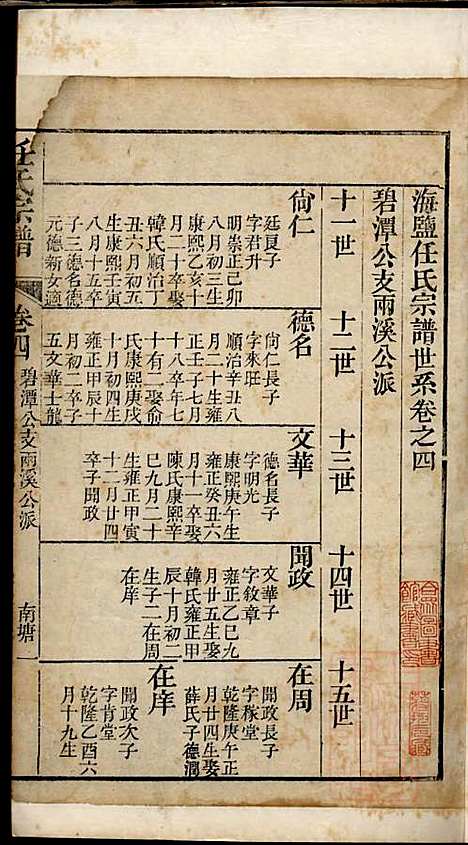 海鹽任氏宗譜世系卷之四
碧潭公支兩溪公派
十一世
十二世
十三世
十四世
十五世
尙仁
廷夏子
字君升
明崇正己卯
八月初三生
康熙乙亥十
月二十卒娶
韓氏順治丁
丑六月初五
生康熙壬寅
八月十五卒
子三德名德
元德新女適
德名
尙仁長子
字來旺
順治辛丑八
月二十生雍
正壬子七月
十八卒年七
十有二娶俞
氏康熙庚戌
十月初四生
雍正甲辰十
月初二卒子
五文華士龍
文華
德名長子
字明光
康熙庚午生
雍正癸丑六
月十一卒娶
陳氏康熙辛
巳九月二十
生雍正甲寅
十二月廿四
卒子聞政
聞政
文華子
字敘章
雍正乙巳九
月廿五生娶
韓氏雍正甲
辰十月初二
生子二在周
在庠
在周
聞政長子
字稼堂
乾隆庚午正
月廿四生娶
薛氏子德潤
在庠
聞政次子
字肯堂
乾隆乙酉六
月十九生
任氏宗譜
卷四
碧潭公支兩溪公派
南塘
一